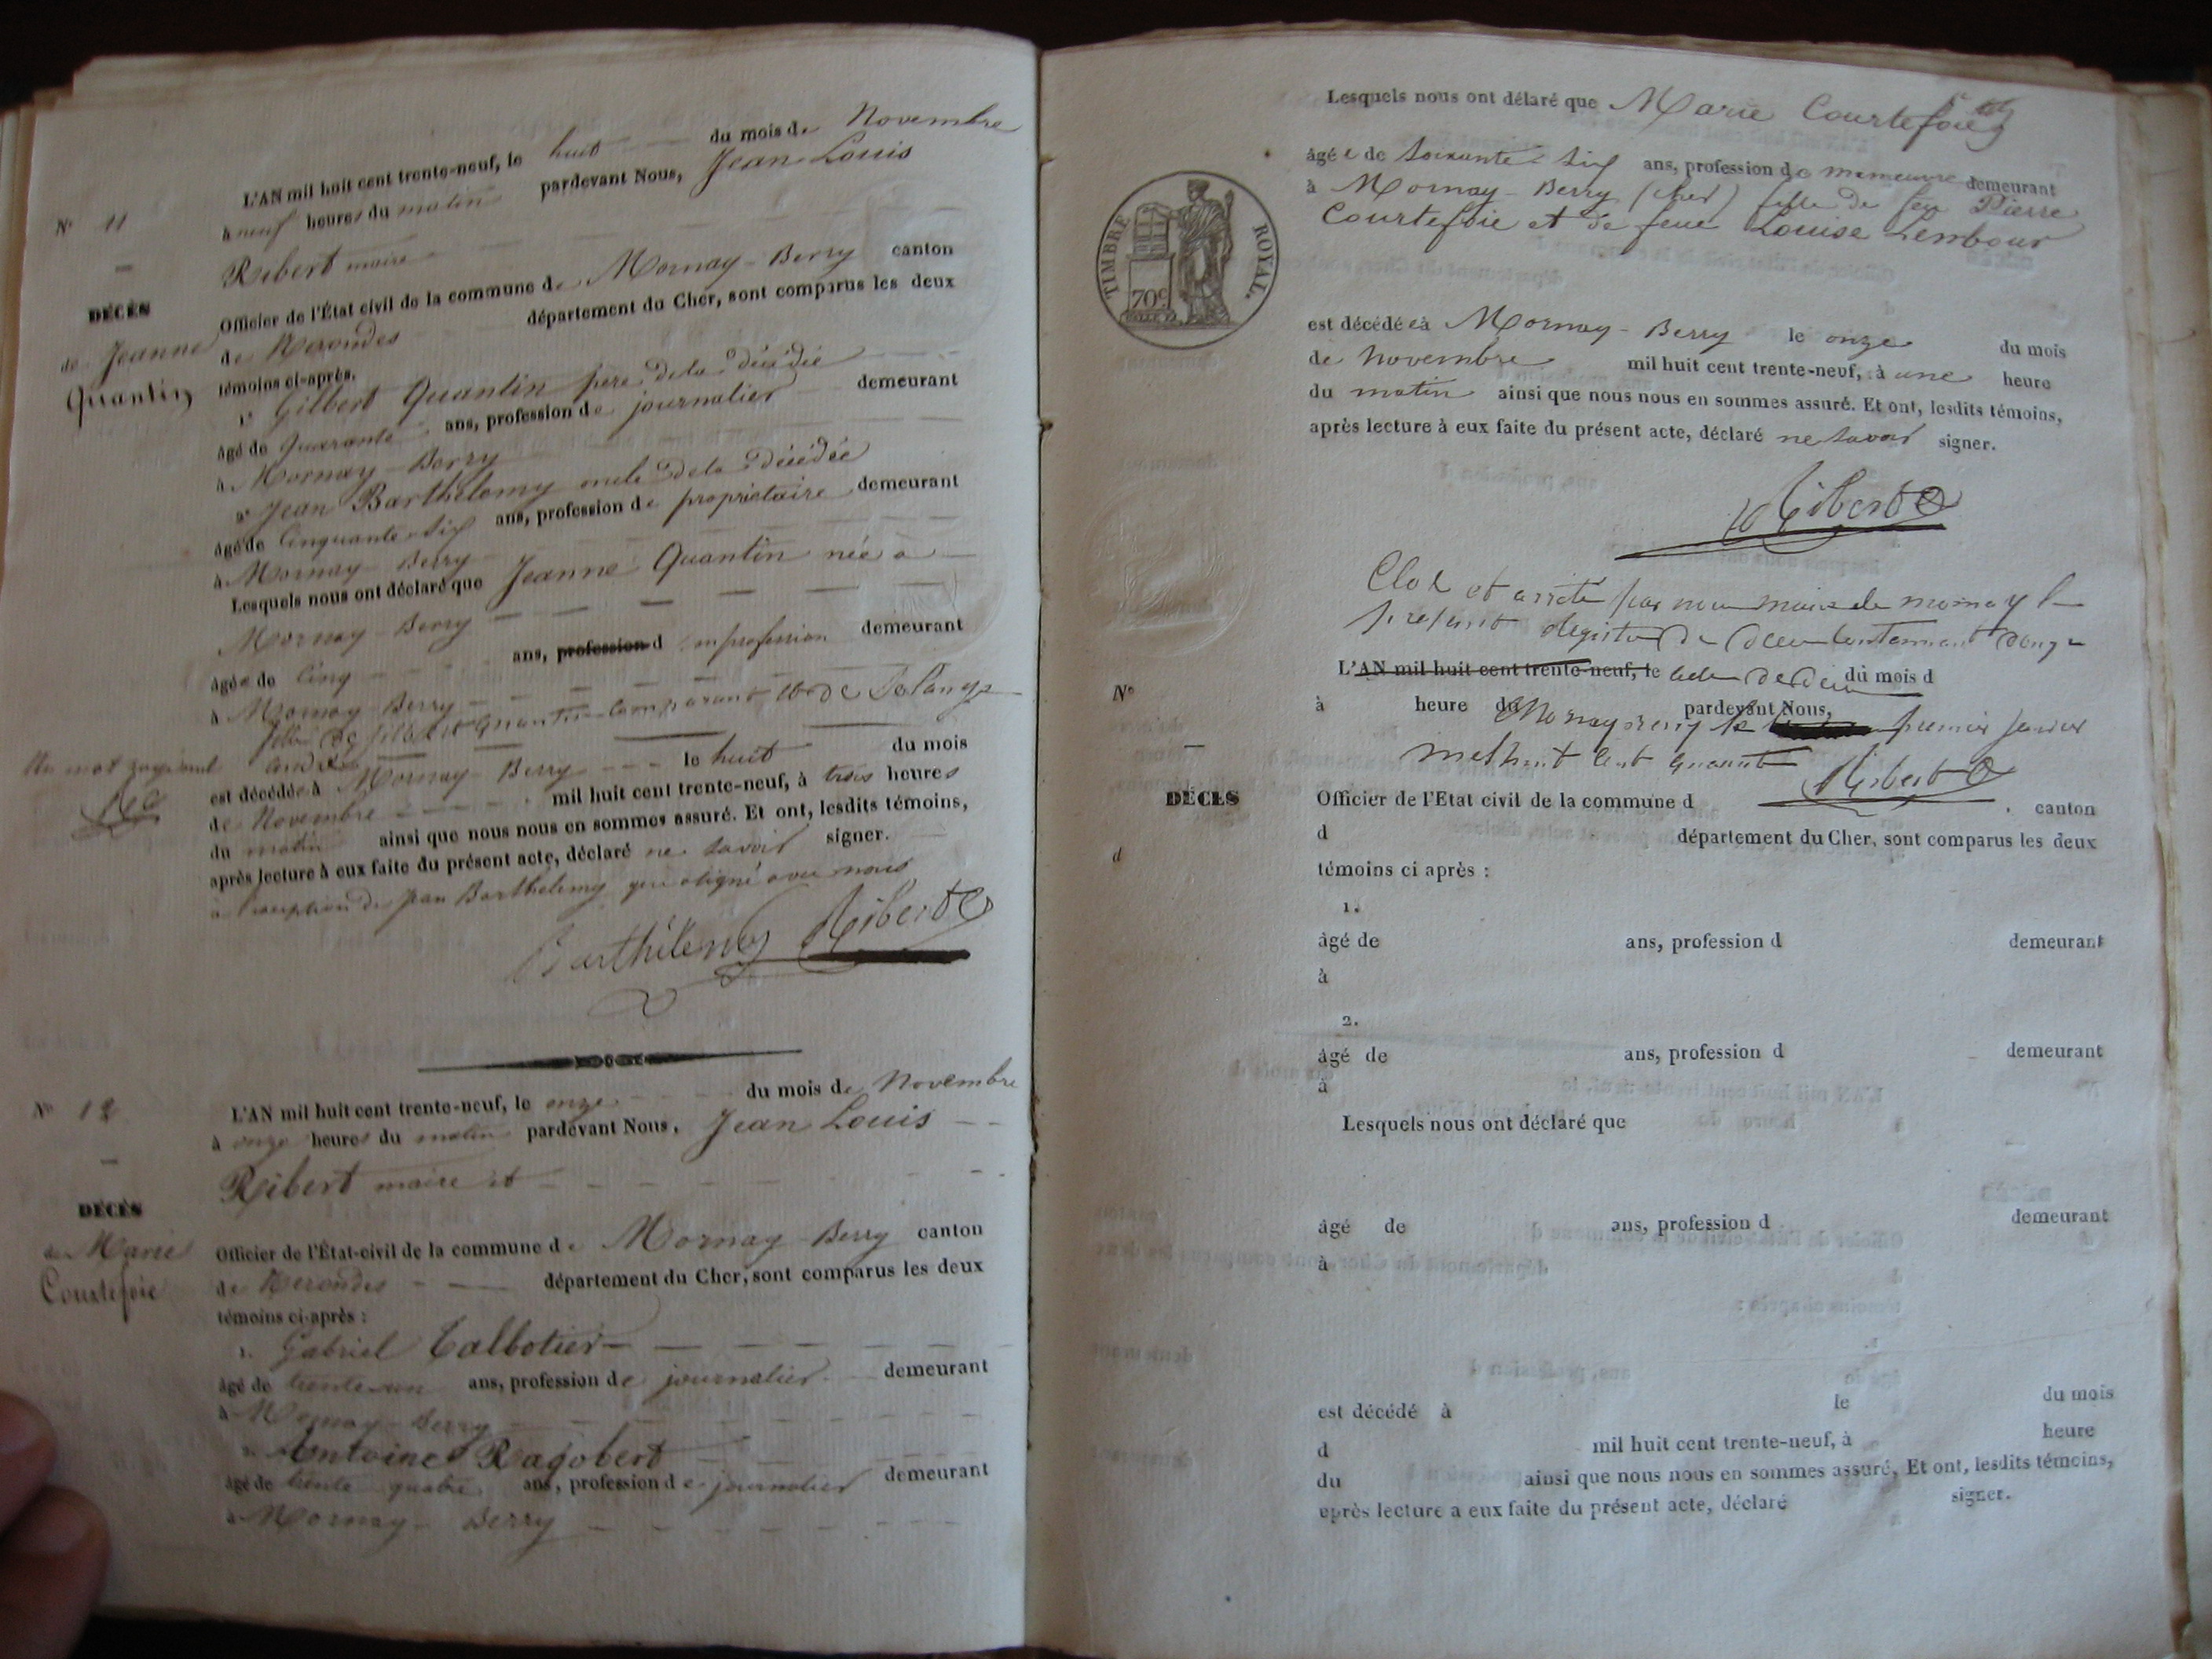 N° 11
DÉCÈS
de Jeanne
Quantin
L'AN mil huit cent trente-neuf, le huit du mois de Novembre
à neuf heures du matin pardevant Nous, Jean Louis
Ribert maire
Officier de l'État civil de la commune de Mornay-Berry canton
de Nerondes département du Cher, sont comparus les deux
témoins ci-après.
1° Gilbert Quantin père de la décédée
âgé de quarante ans, profession de journalier demeurant
à Mornay-Berry
2° Jean Barthelemy oncle de la décédée
âgé de Cinquante-six ans, profession de propriétaire demeurant
à Mornay-Berry
Lesquels nous ont déclaré que Jeanne Quantin née a
Mornay-Berry
âgée de Cinq ans, profession d demeurant
à Mornay-Berry
fille de Gilbert Quantin Comparant et de
est décédée à Mornay-Berry le huit du mois
de Novembre mil huit cent trente-neuf, à trois heures
du matin ainsi que nous nous en sommes assuré. Et ont, lesdits témoins,
après lecture à eux faite du présent acte, déclaré ne savoir signer.
a l'exception de Jean Barthelemy qui a signé avec nous
Barthélemy Ribert
N° 12
DÉCÈS
de Marie
Courtefoie
L'AN mil huit cent trente-neuf, le onze du mois de Novembre
à onze heures du matin pardevant Nous, Jean Louis
Ribert maire et
Officier de l'État-civil de la commune de Mornay-Berry canton
de Nerondes département du Cher, sont comparus les deux
témoins ci-après :
1. Gabriel Talbotier
âgé de trente-un ans, profession de journalier demeurant
à Mornay-Berry
2. Antoine Ragobert
âgé de trente quatre ans, profession de journalier demeurant
à Mornay-Berry
Lesquels nous ont délaré que Marie Courtefoie
âgée de Soixante-six ans, profession de manœuvre demeurant
à Mornay-Berry (Cher) fille de feu Pierre
Courtefoie et de feue Louise Lembour
TIMBRE ROYAL.
70c
est décédée à Mornay-Berry le onze du mois
de Novembre mil huit cent trente-neuf, à une heure
du matin ainsi que nous nous en sommes assuré. Et ont, lesdits témoins,
après lecture à eux faite du présent acte, déclaré ne savoir signer.
Ribert
Clos et arrêté par nous maire de mornay le
présent registre de deces contennant douze
L'AN mil huit cent trente-neuf, le acte de deces du mois d
N°
à heure du pardevant Nous,
Mornay berry le premier janvier
mil huit cent quarante Ribert
DÉCÈS
d
Officier de l'Etat civil de la commune d canton
d département du Cher, sont comparus les deux
témoins ci après :
1.
âgé de ans, profession d demeurant
à
2.
âgé de ans, profession d demeurant
à
Lesquels nous ont déclaré que
âgé de ans, profession d demeurant
à
est décédé à le du mois
d mil huit cent trente-neuf, à heure
du ainsi que nous nous en sommes assuré. Et ont, lesdits témoins,
après lecture a eux faite du présent acte, déclaré signer.